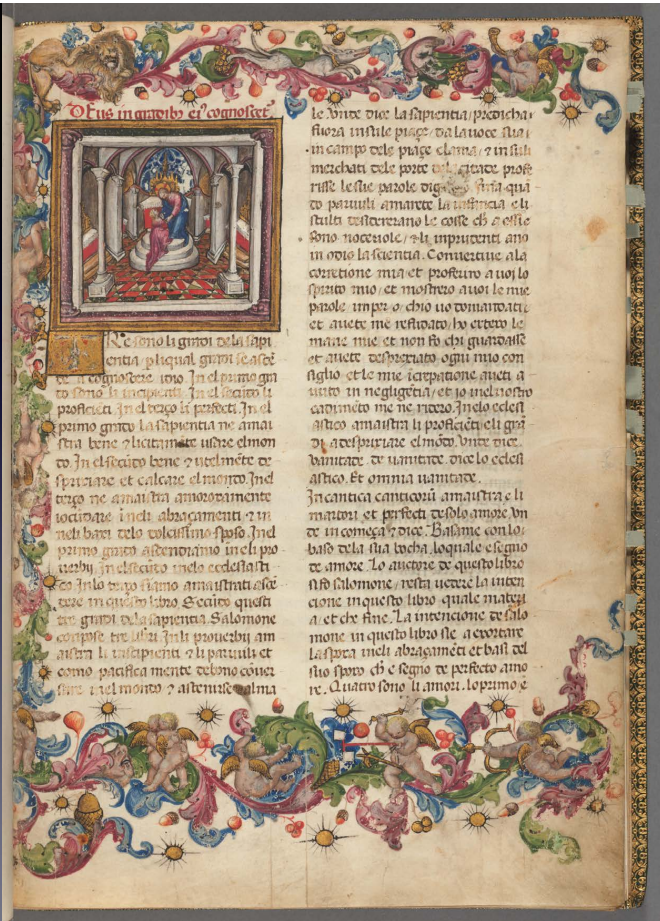 DEus in gradibꝰ eiꝰ cognoscet
Re sono li gradi de la sapi
entia p liqual gradi se ascē
de a cognoscere idio. In el primo gra
do sono li incipienti. In el secūdo li
proficiēti. In el terço li perfecti. In el
primo grado la sapientia ne amai
stra bene & licitamēte usare el mon
do. In el secūdo bene & utelmēte de
spriciare et calcare el mondo. In el
terço ne amaistra amorosamente
iocūdare i neli abraçamenti & in
neli baxi delo dolcissimo sposo. In el
primo grado ascendiamo in eli pro
uerbij. In el secūdo in elo ecclesiasti
co. In lo terço siamo amaistrati ascē
dere in questo libro. Secūdo questi
tre gradi dela sapientia Salomone
cōpose tre libri. In li prouerbij am
aistra li insipienti & li paruuli et
como pacifica mente debono cōuer
sare i nel mondo & astenirse
le. Vnde dice la sapientia predicha
fuora in su le piaçe da la uoce sua
in campo dele piaçe clama & in su li
merchati dele porte de la citade profe
risse le sue parole fina qua
do paruuli amarete la infancia e li
stulti desiderarano le cosse ch a essie
sono noceuole & li inprudenti ano
in odio la scientia. Conuertiue a la
corretione mia et proferiro a uoi lo
spirito mio et mostrero a uoi le mie
parole imper o chio uo domandati
et auete me refudato ho exteso le
mane mie et non fo chi guardasse
et auete despreziato ogni mio con
siglio et le mie īcrepatione aueti a
uuto in negligētia et io in el uostro
cadimēto me ne ridero. In elo eclesi
astico amaistra li proficiēti e li gra
di a despriciare el mōdo. Vnde dice
uanitade de uanitade dice lo eclesi
astico. Et omnia uanitade.
In cantica canticorū amaistra e li
mariori et perfecti de solo amore vn
de in começa & dice. Basame con lo
baso dela sua bocha. lo quale e segno
de amore. Lo auctore de questo libro
si fo salomone resta uedere la inten
cione in questo libro quale materi
a et che fine. La intencione de salo
mone in questo libro sie a exortare
la sposa in eli abraçamēti et basi del
suo sposo ch e segno de perfecto amo
re. Quatro sono li amori. lo primo e